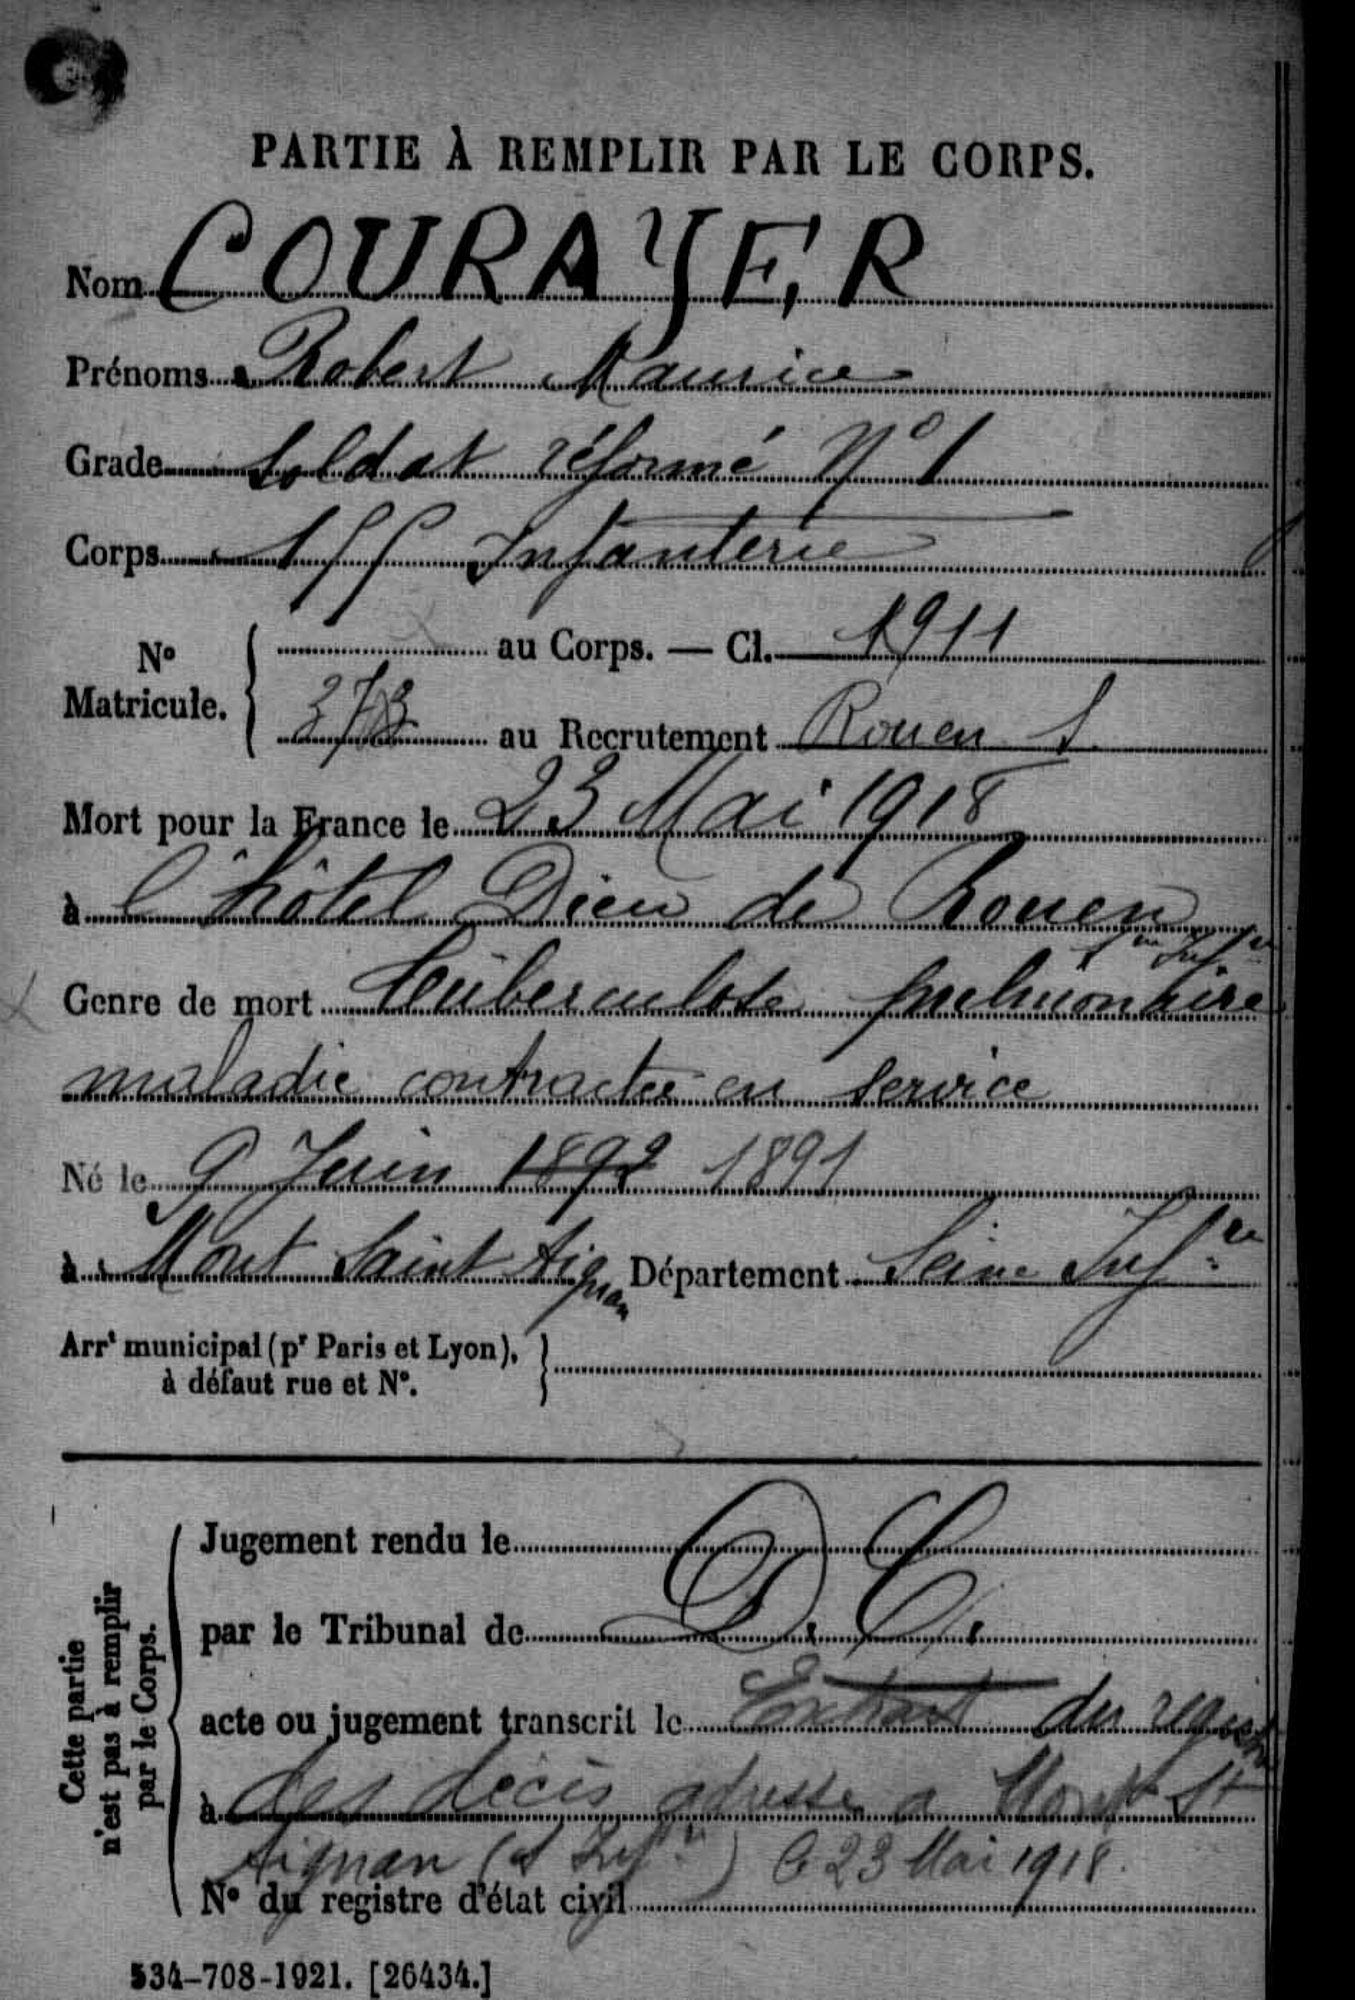 PARTIE À REMPLIR PAR LE CORPS.
Nom COURAYER
Prénoms Robert Maurice
Grade Soldat réformé N° 1
Corps 155 Infanterie
N° Matricule.
au Corps. — Cl. 1911
373 au Recrutement Rouen S.
Mort pour la France le 23 Mai 1918
à l'hôtel Dieu de Rouen
Sne Infre
Genre de mort Tuberculose pulmonaire
maladie contractée en service
Né le 9 Juin 1892 1891
à Mont Saint Aignan Département Seine Infre
Arrt municipal (pr Paris et Lyon),
à défaut rue et N°.
Cette partie
n'est pas à remplir
par le Corps.
Jugement rendu le
par le Tribunal de D. C.
acte ou jugement transcrit le Extrait du registre
à des décès adressé a Mont St
Aignan (S Infre) le 23 Mai 1918.
N° du registre d'état civil
534-708-1921. [26434.]